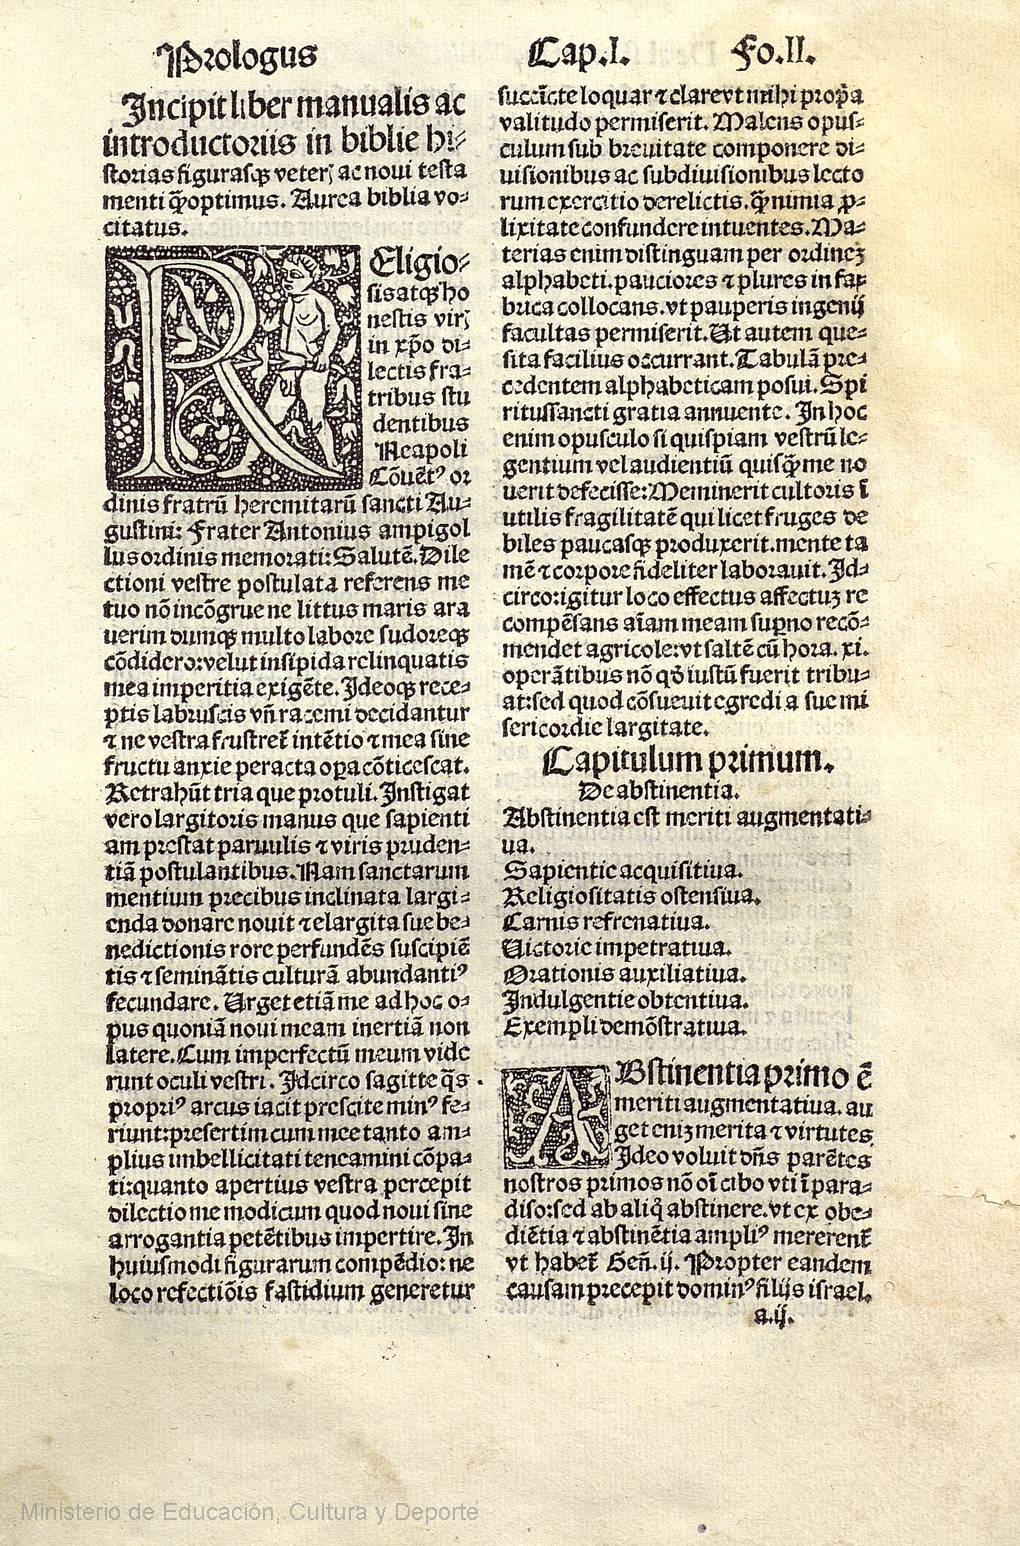 Prologus
Cap.I. Fo.II.
Incipit liber manualis ac
introductoriis in biblie hi⸗
storias figurasqꝫ veterꝭ ac noui testa
menti q̄ꝫoptimus. Aurea biblia vo⸗
citatus.
REligio⸗
sis atqꝫ ho
nestis virꝭ
in xp̄o di⸗
lectis fra⸗
tribus stu
dentibus
Neapoli
Cōuētꝰ or
dinis fratrū heremitarū sancti Au⸗
gustini: Frater Antonius ampigol
lus ordinis memorati: Salutē. Dile
ctioni vestre postulata referens me
tuo nō incōgrue ne littus maris ara
uerim dumqꝫ multo labore sudoreqꝫ
cōdidero: velut insipida relinquatis
mea imperitia exigēte. Ideoqꝫ rece⸗
ptis labruscis vn̄ racemi decidantur
⁊ ne vestra frustret̄ intētio ⁊ mea sine
fructu anxie peracta oꝑa cōticescat.
Retrahūt tria que protuli. Instigat
vero largitoris manus que sapienti
am prestat paruulis ⁊ viris pruden⸗
tiā postulantibus. Nam sanctarum
mentium precibus inclinata largi⸗
enda donare nouit ⁊ elargita sue be⸗
nedictionis rore perfundēs suscipiē
tis ⁊ seminātis culturā abundantiꝰ
fecundare. Urget etiā me ad hoc o⸗
pus quoniā noui meam inertiā non
latere. Cum imperfectū meum vide
runt oculi vestri. Idcirco sagitte q̄s
propriꝰ arcus iacit prescite minꝰ fe⸗
riunt: presertim cum mee tanto am⸗
plius imbellicitati tencamini cōpa⸗
ti: quanto apertius vestra percepit
dilectio me modicum quod noui sine
arrogantia petētibus impertire. In
huiusmodi figurarum compēdio: ne
loco refectiōis fastidium generetur
succīcte loquar ⁊ clare vt mihi prop̄a
valitudo permiserit. Malens opus⸗
culum sub breuitate componere di⸗
uisionibus ac subdiuisionibus lecto
rum exercitio derelictis. q̄ꝫ nimia ꝓ⸗
lixitate confundere intuentes. Ma⸗
terias enim distinguam per ordinēꝫ
alphabeti. pauciores ⁊ plures in fa
brica collocans. vt pauperis ingenij
facultas permiserit. Ut autem que⸗
sita facilius occurrant. Tabulā pre⸗
cedentem alphabeticam posui. Spi
ritussancti gratia annuente. In hoc
enim opusculo si quispiam vestrū le⸗
gentium vel audientiū quisq̄ꝫ me no
uerit defecisse: Meminerit cultoris ī
utilis fragilitatē qui licet fruges de
biles paucasqꝫ produxerit. mente ta
mē ⁊ corpore fideliter laborauit. Id⸗
circo: igitur loco effectus affectuꝫ re
compēsans aīam meam suꝑno recō⸗
mendet agricole: vt saltē cū hora. xi.
operātibus nō qđ iustū fuerit tribu⸗
at: sed quod cōsueuit egredi a sue mi
sericordie largitate.
Capitulum primum.
De abstinentia.
Abstinentia est meriti augmentati⸗
ua.
Sapientie acquisitiua.
Religiositatis ostensiua.
Carnis refrenatiua.
Uictorie impetratiua.
Orationis auxiliatiua.
Indulgentie obtentiua.
Exempli demōstratiua.
ABstinentia primo ē
meriti augmentatiua. au
get enīꝫ merita ⁊ virtutes
Ideo voluit dn̄s parētes
nostros primos nō oī cibo vti ī para⸗
diso: sed ab aliq̄ abstinere. vt ex obe⸗
diētia ⁊ abstinētia ampliꝰ mererent̄
vt habet̄ Gen̄. ij. Propter eandem
causam precepit dominꝰ filijs israel.
a.ij.
Ministerio de Educación, Cultura y Deporte